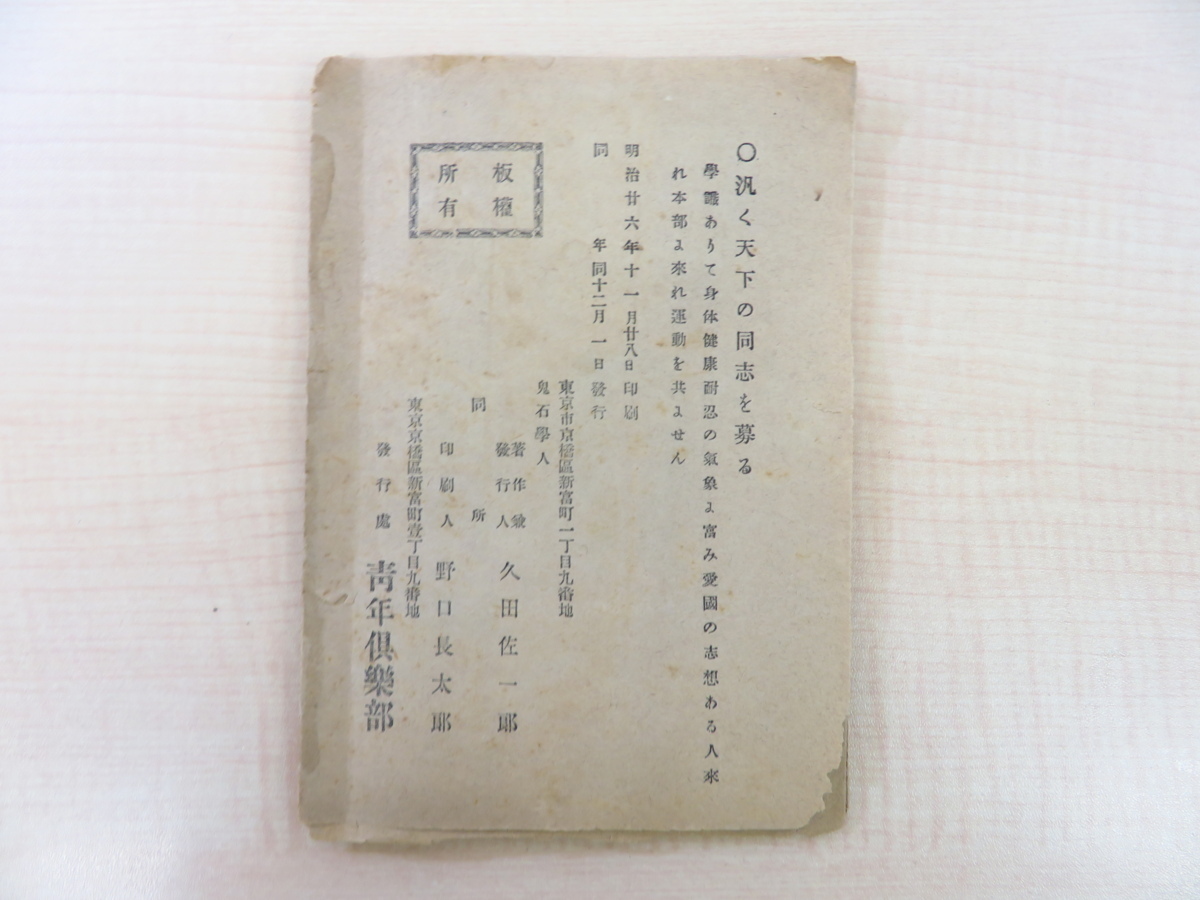 ○汎く天下の同志を募る
學識ありて身体健康耐忍の氣象に富み愛國の志想ある人來
れ本部に來れ運動を共にせん
明治廿六年十一月廿八日印刷
同年同十二月一日發行
東京市京橋區新富町一丁目九番地
鬼石學人
著作兼
發行人 久田佐一郎
同所
印刷人 野口長太郎
東京京橋區新富町壹丁目九番地
發行處 靑年倶樂部
板權
所有